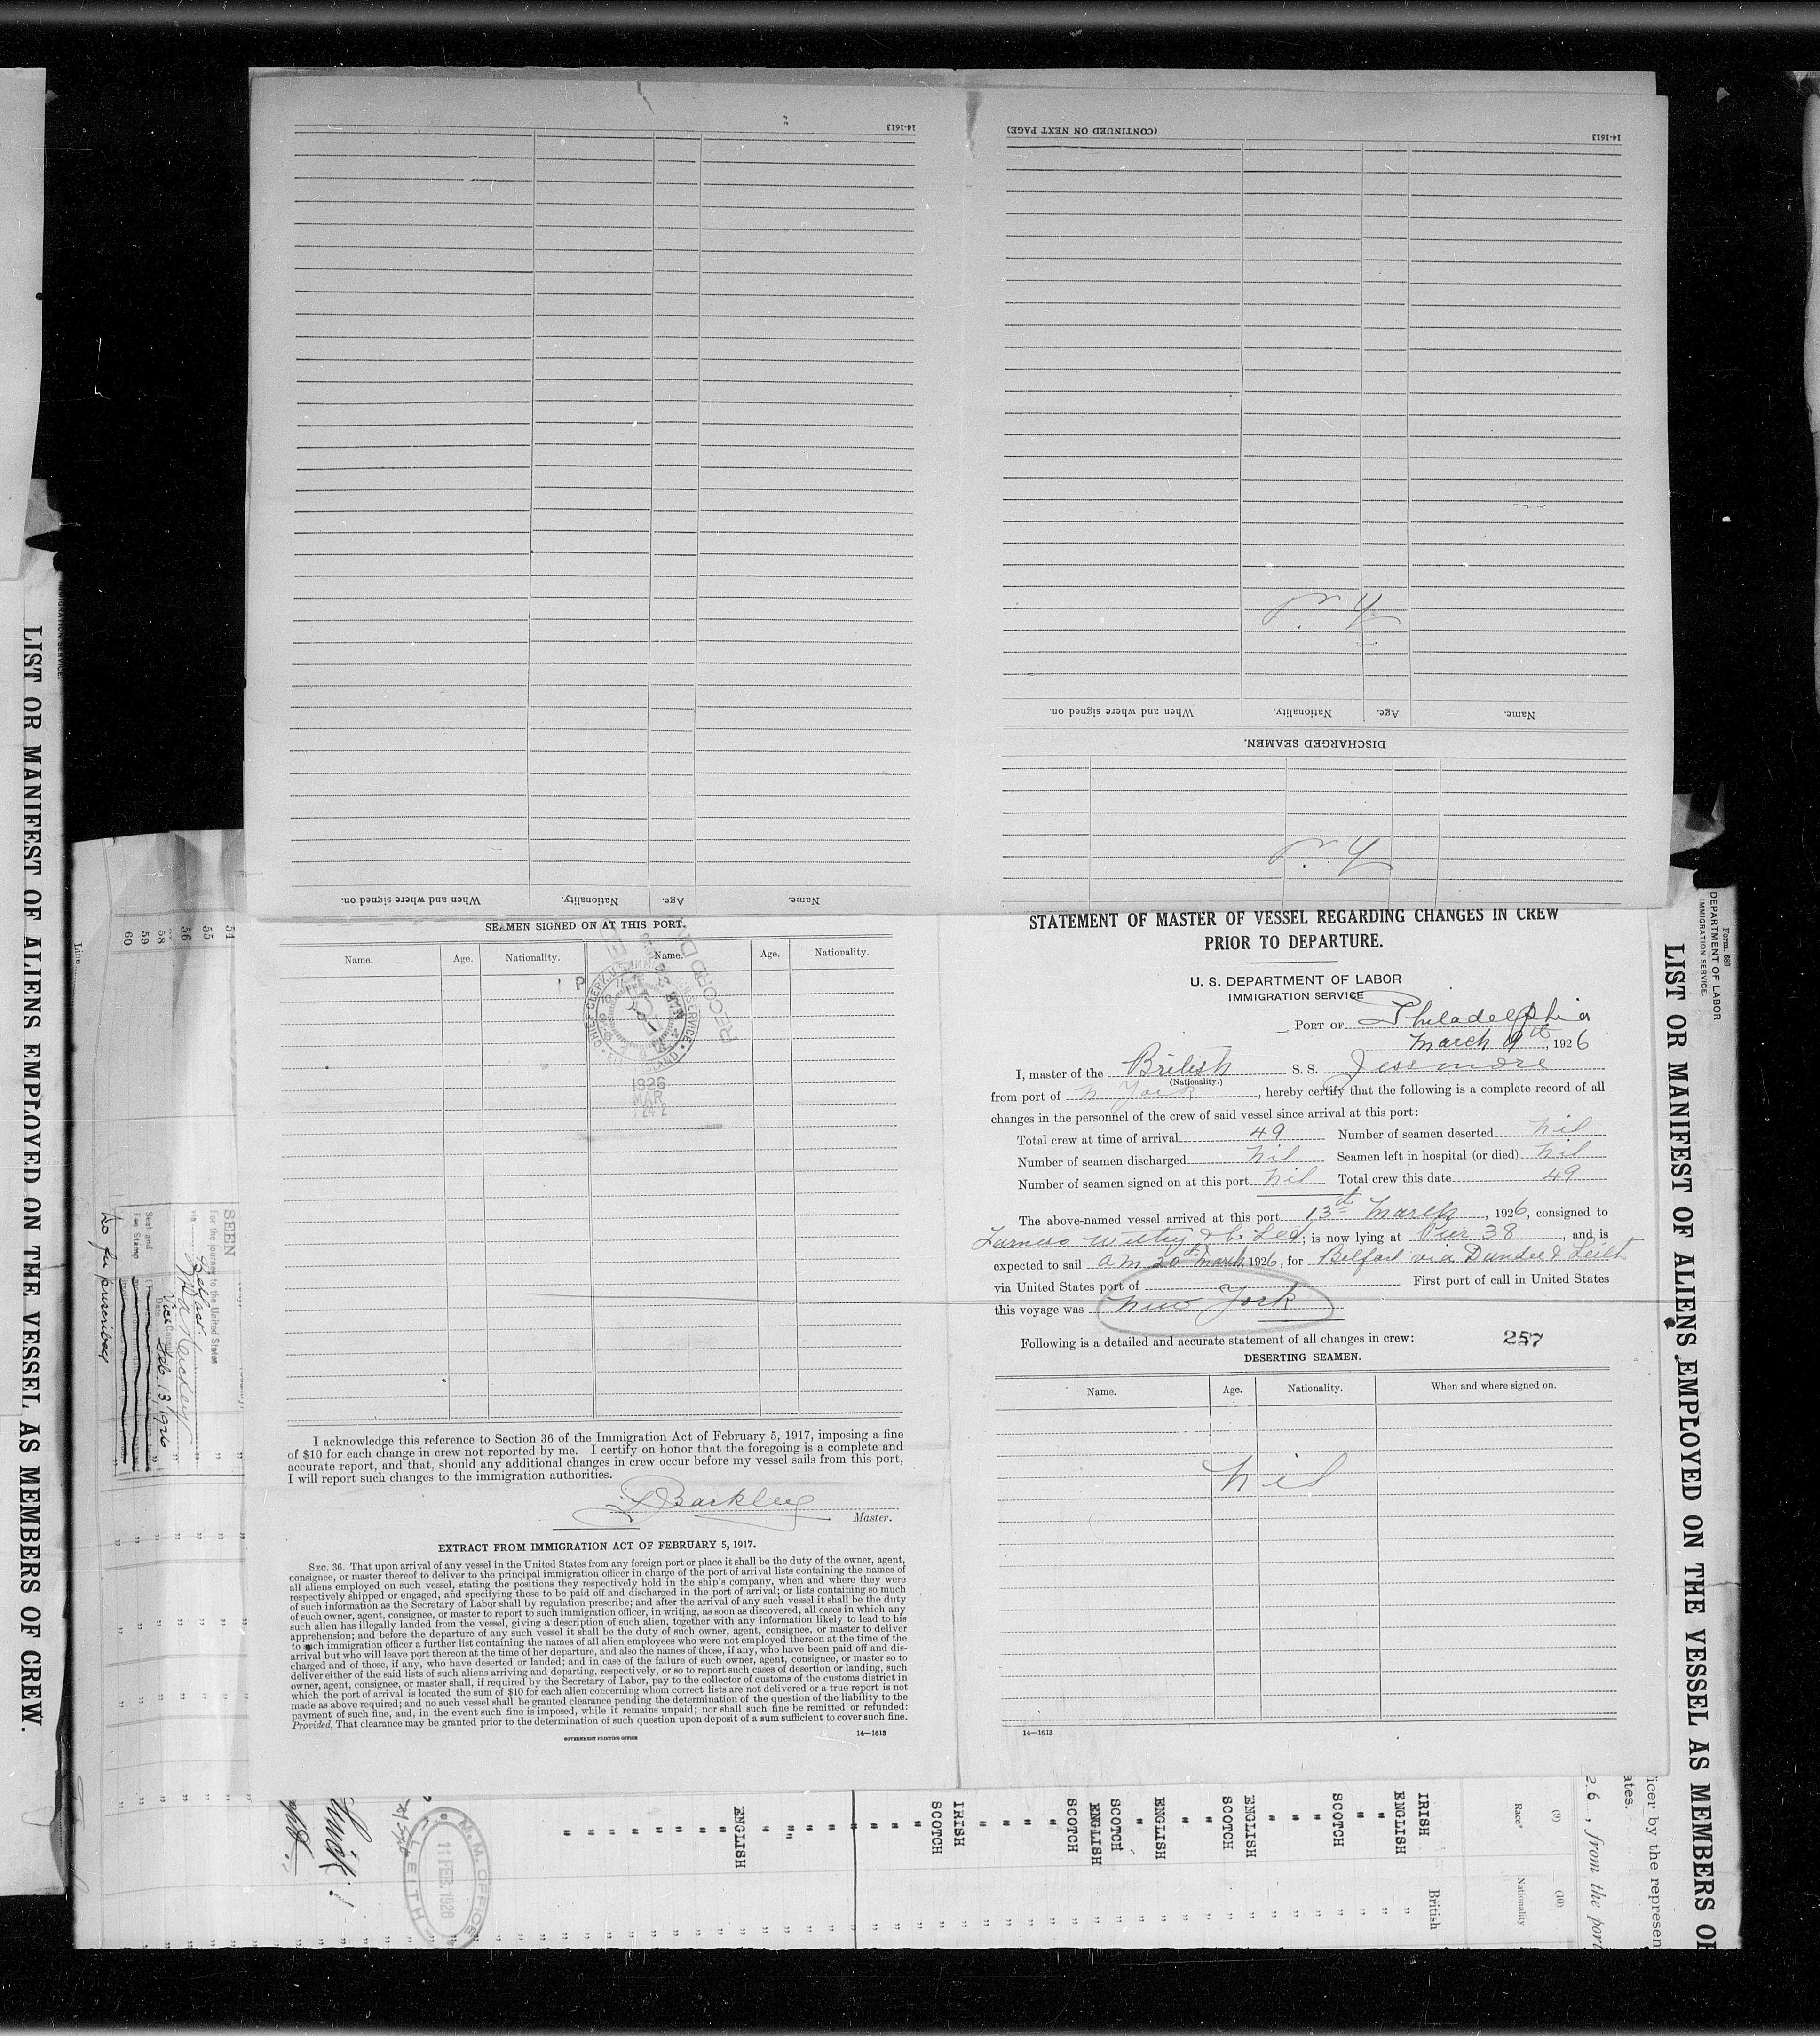 14-1613
(CONTINUED ON NEXT PAGE)
14-1613
Name. Age. Nationality. When and where signed on.
DISCHARGED SEAMEN.
Name. Age. Nationality. When and where signed on.
SEAMEN SIGNED ON AT THIS PORT.
Name. Age. Nationality. Name. Age. Nationality.
1926
MAR
I acknowledge this reference to Section 36 of the Immigration Act of February 5, 1917, imposing a fine
of $10 for each change in crew not reported by me. I certify on honor that the foregoing is a complete and
accurate report, and that, should any additional changes in crew occur before my vessel sails from this port,
I will report such changes to the immigration authorities.
Barkley
Master.
EXTRACT FROM IMMIGRATION ACT OF FEBRUARY 5, 1917.
SEC. 36. That upon arrival of any vessel in the United States from any foreign port or place it shall be the duty of the owner, agent,
consignee, or master thereof to deliver to the principal immigration officer in charge of the port of arrival lists containing the names of
all aliens employed on such vessel, stating the positions they respectively hold in the ship's company, when and where they were
respectively shipped or engaged, and specifying those to be paid off and discharged in the port of arrival; or lists containing so much
of such information as the Secretary of Labor shall by regulation prescribe; and after the arrival of any such vessel it shall be the duty
of such owner, agent, consignee, or master to report to such immigration officer, in writing, as soon as discovered, all cases in which any
such alien has illegally landed from the vessel, giving a description of such alien, together with any information likely to lead to his
apprehension; and before the departure of any such vessel it shall be the duty of such owner, agent, consignee, or master to deliver
to such immigration officer a further list containing the names of all alien employees who were not employed thereon at the time of the
arrival but who will leave port thereon at the time of her departure, and also the names of those, if any, who have been paid off and dis-
charged and of those, if any, who have deserted or landed; and in case of the failure of such owner, agent, consignee, or master so to
deliver either of the said lists of such aliens arriving and departing, respectively, or so to report such cases of desertion or landing, such
owner, agent, consignee, or master shall, if required by the Secretary of Labor, pay to the collector of customs of the customs district in
which the port of arrival is located the sum of $10 for each alien concerning whom correct lists are not delivered or a true report is not
made as above required; and no such vessel shall be granted clearance pending the determination of the question of the liability to the
payment of such fine, and, in the event such fine is imposed, while it remains unpaid; nor shall such fine be remitted or refunded:
Provided, That clearance may be granted prior to the determination of such question upon deposit of a sum sufficient to cover such fine.
GOVERNMENT PRINTING OFFICE
14—1613
STATEMENT OF MASTER OF VESSEL REGARDING CHANGES IN CREW
PRIOR TO DEPARTURE.
U. S. DEPARTMENT OF LABOR
IMMIGRATION SERVICE
PORT OF Philadelphia
March 9th, 1926
I, master of the British S. S. Jessmore
(Nationality.)
from port of N York, hereby certify that the following is a complete record of all
changes in the personnel of the crew of said vessel since arrival at this port:
Total crew at time of arrival 49 Number of seamen deserted nil
Number of seamen discharged nil Seamen left in hospital (or died) nil
Number of seamen signed on at this port nil Total crew this date 49
The above-named vessel arrived at this port 13th March, 1926, consigned to
Furness Withy & Co Ltd; is now lying at Pier 38, and is
expected to sail am 20th March, 1926, for Belfast via Dundee & Leith
via United States port of First port of call in United States
this voyage was New York
Following is a detailed and accurate statement of all changes in crew: 257
DESERTING SEAMEN.
Name. Age. Nationality. When and where signed on.
nil
14—1613
LIST OR MANIFEST OF ALIENS EMPLOYED ON THE VESSEL AS MEMBERS OF CREW.
Line
54
55
56
58
59
60
SEEN
For the journey to the United States
via
Belfast
Vice Consul
Date Feb 13/1926
Seal and
Fee Stamp
M.M. OFFICE
LEITH
ENGLISH
SCOTCH
IRISH
SCOTCH
ENGLISH
SCOTCH
ENGLISH
SCOTCH
ENGLISH
SCOTCH
ENGLISH
IRISH
British
(9)
Race*
(10)
Nationality
, from the port
icer by the represen
ates.
Form 680
DEPARTMENT OF LABOR
IMMIGRATION SERVICE
LIST OR MANIFEST OF ALIENS EMPLOYED ON THE VESSEL AS MEMBERS OF